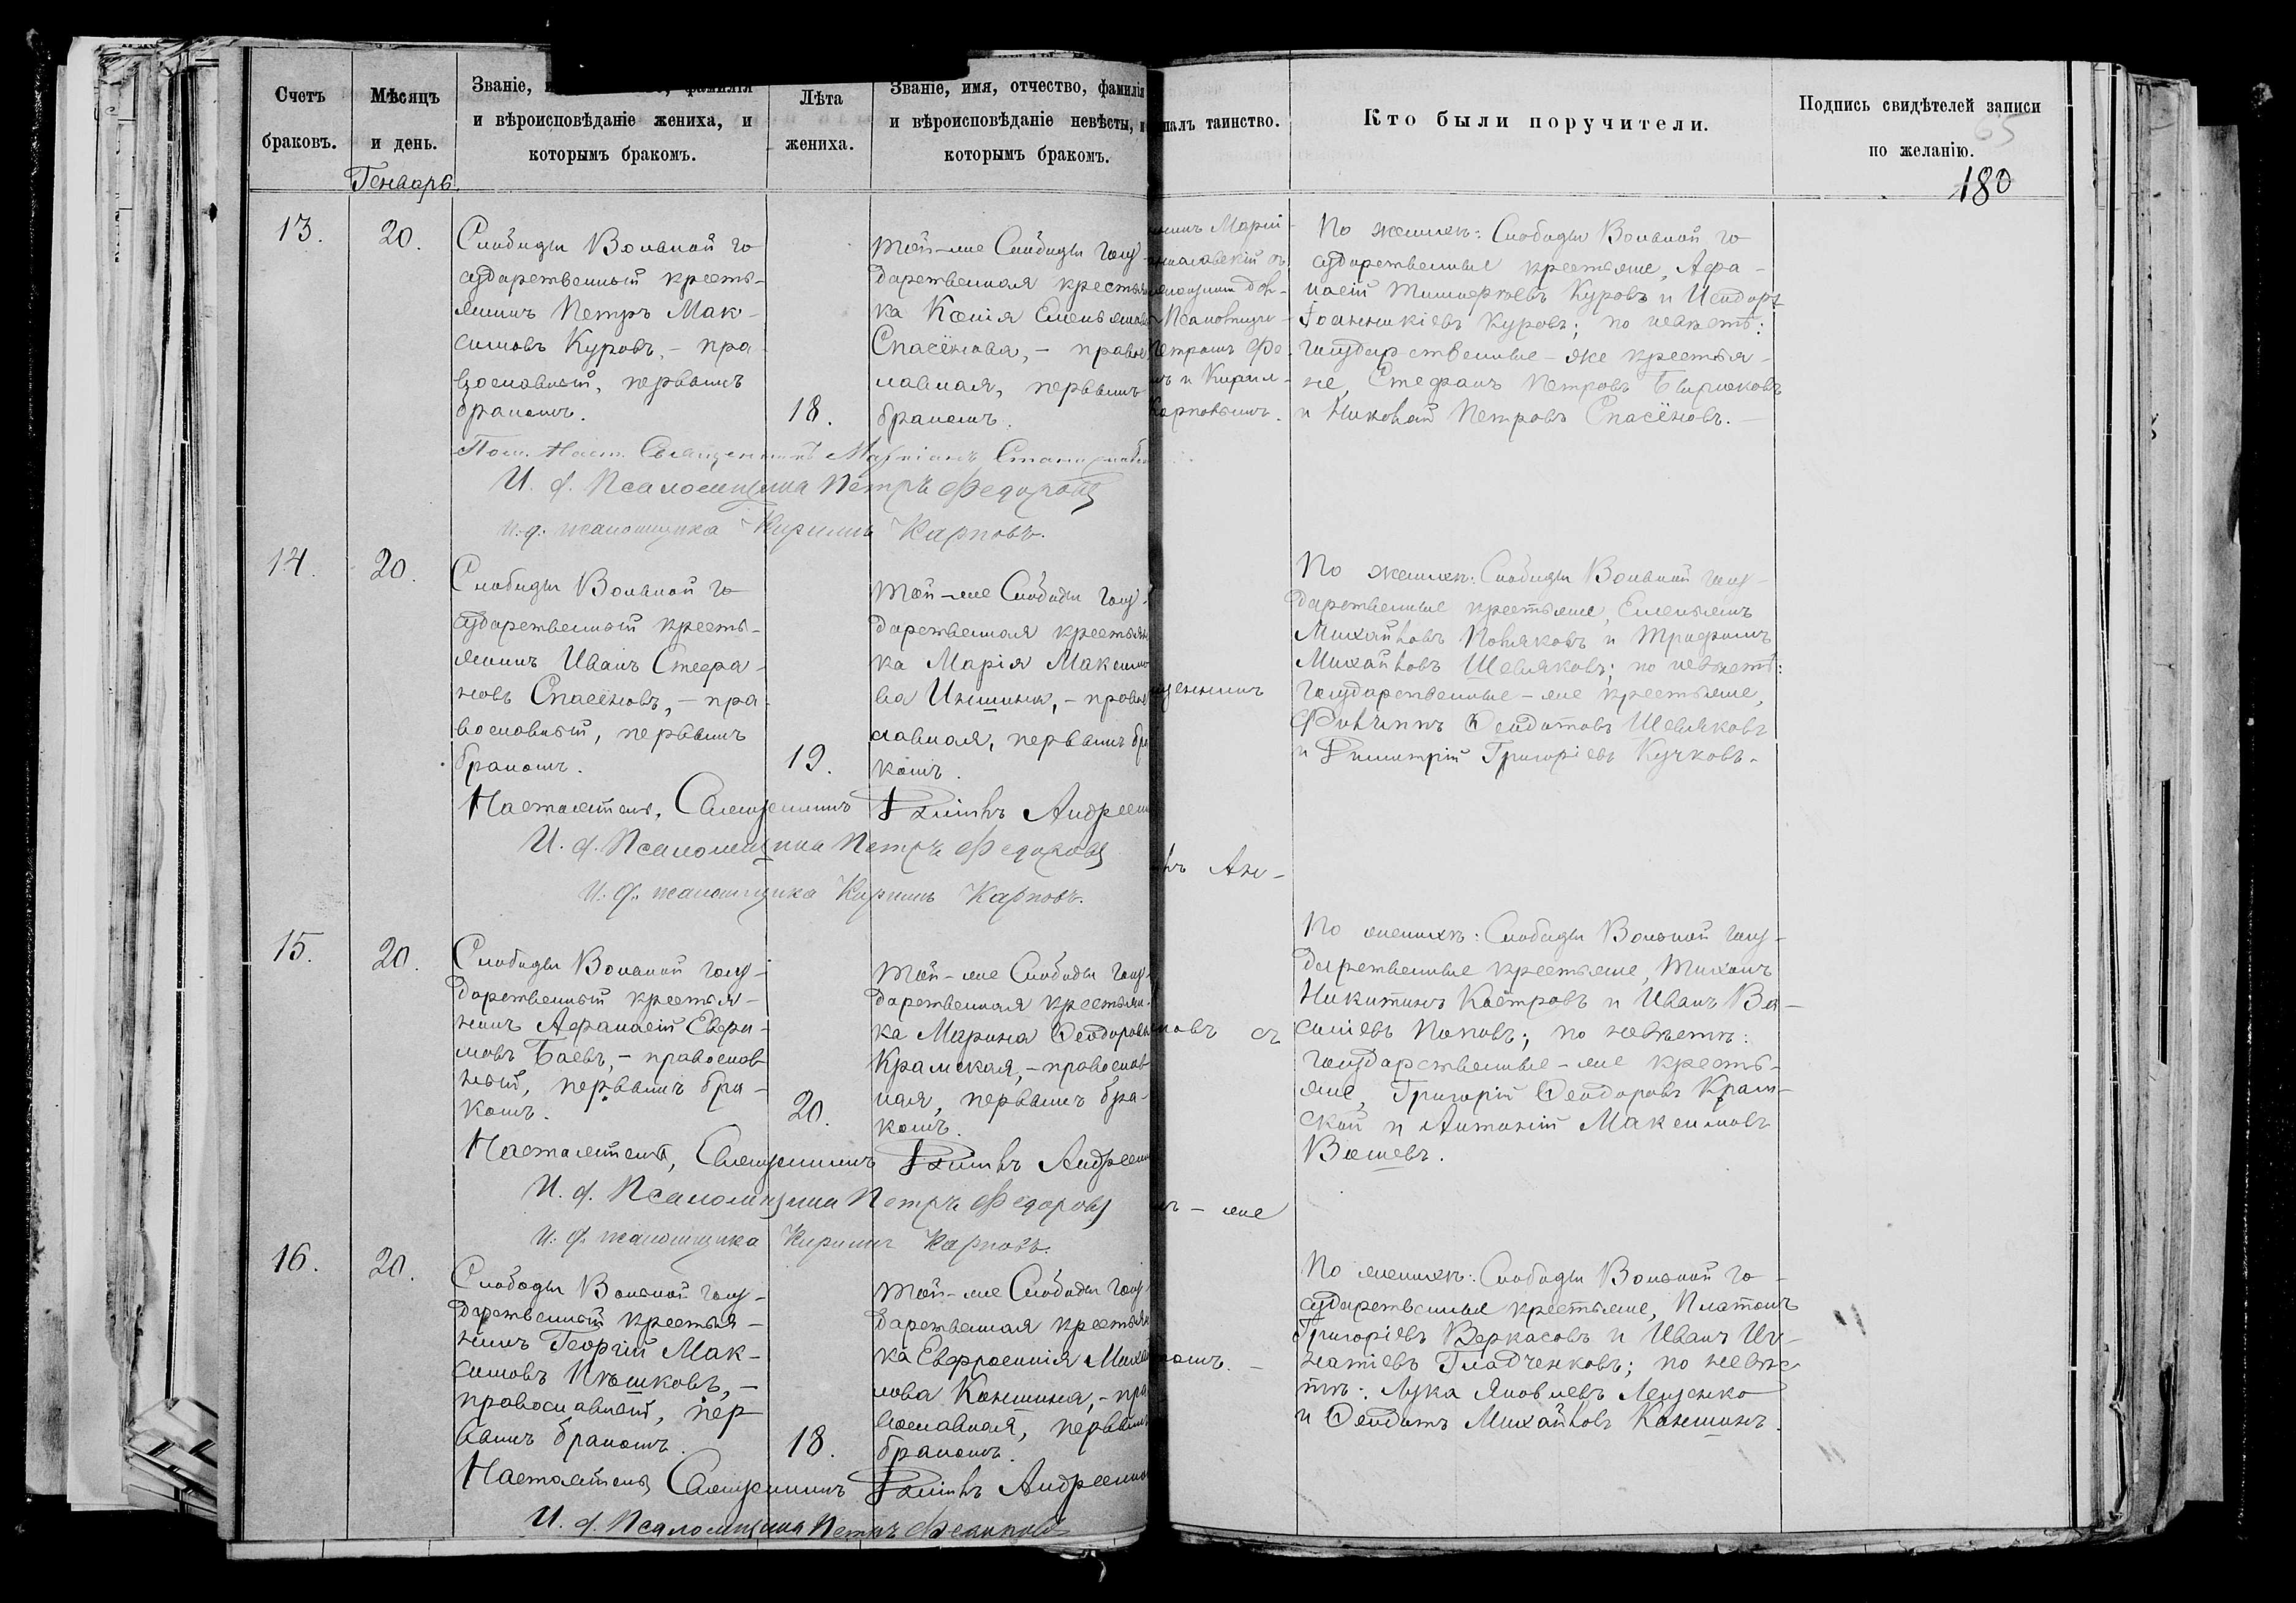 Счетъ
браковъ.
Мѣсяцъ
и день.
Генварь.
Званіе, фамилія
и вѣроисповѣданіе жениха, и
которымъ бракомъ.
Лѣта
жениха.
Званіе, имя, отчество, фамилія
и вѣроисповѣданіе невѣсты, и
которымъ бракомъ.
таинство.
Кто были поручители.
Подпись свидѣтелей записи
по желанію.
65
180
13.
20.
Слободы Вольной го-
сударственный кресть-
янинъ Петръ Мак-
симовъ Куровъ, – пра-
вославный, первымъ
бракомъ.
18.
Той-же Слободы госу-
дарственная крестьян
ка Ксенія Емельянова
Спасёнова, – правос
лавная, первымъ
бракомъ.
Петромъ Фе-
и Кирил-
Карповымъ.
По женихѣ: Слободы Вольной го-
сударственные крестьяне, Афа-
насій Тимофеевъ Куровъ и Исидоръ
Іоанникіевъ Куровъ; по невѣстѣ:
государственные-же крестья-
не, Стефанъ Петровъ
и Николай Петровъ Спасёновъ. –
Пом. Наст. Священникъ
И. д. Псаломщика Петръ Федоровъ
и. д. псаломщика Кириллъ Карповъ.
14.
20.
Слободы Вольной го-
сударственный кресть-
янинъ Иванъ Стефа-
новъ Спасёновъ, – пра-
вославный, первымъ
бракомъ.
19.
Той-же Слободы госу-
дарственная крестьян
ка Марія Максимо
ва Иншина, – правос
славная, первымъ бра
комъ.
По женихѣ: Слободы Вольной госу-
дарственные крестьяне, Емельянъ
Михайловъ Поляковъ и Трифонъ
Михайловъ Шевляковъ; по невѣстѣ:
государственные-же крестьяне,
Филиппъ Ѳеодотовъ Шевляковъ
и Димитрій Григоріевъ Кучковъ.
Настоятель, Священникъ
И. д. Псаломщика Петръ Федоровъ
и. д. псаломщика Кириллъ Карповъ.
15.
20.
Слободы Вольной госу-
дарственный крестья-
нинъ Афанасій Ефри-
мовъ Баевъ, – православ
ный, первымъ бра-
комъ.
20.
Той-же Слободы госу-
дарственная крестьян-
ка Марина Ѳеодоровна
Крамская, – православ
ная, первымъ бра-
комъ.
съ
По женихѣ: Слободы Вольной госу-
дарственные крестьяне, Тихонъ
Никитинъ Костровъ и Иванъ Ва-
силіевъ Поповъ; по невѣстѣ:
государственные-же кресть-
яне, Григорій Ѳеодоровъ Крам-
ской и Антоній Максимовъ
Настоятель, Священникъ
И. д. Псаломщика Петръ Федоровъ
и. д. псаломщика Кириллъ Карповъ.
– же
16.
20.
Слободы Вольной госу-
дарственный крестья-
нинъ Георгій Мак-
симовъ Пѣшковъ, –
православный, пер
вымъ бракомъ.
18.
Той-же Слободы госу
дарственная крестьян
ка Евфросинія Михай
лова Каншина, – пра
вославная, первымъ
бракомъ.
По женихѣ: Слободы Вольной го-
сударственные крестьяне, Платонъ
Григоріевъ Веркасовъ и Иванъ Иг-
натіевъ Гладченковъ; по невѣс-
тѣ: Лука Яковлевъ Лещенко
и Ѳеодотъ Михайловъ Каншинъ.
Настоятель Священникъ
И. д. Псаломщика Петръ Федоровъ